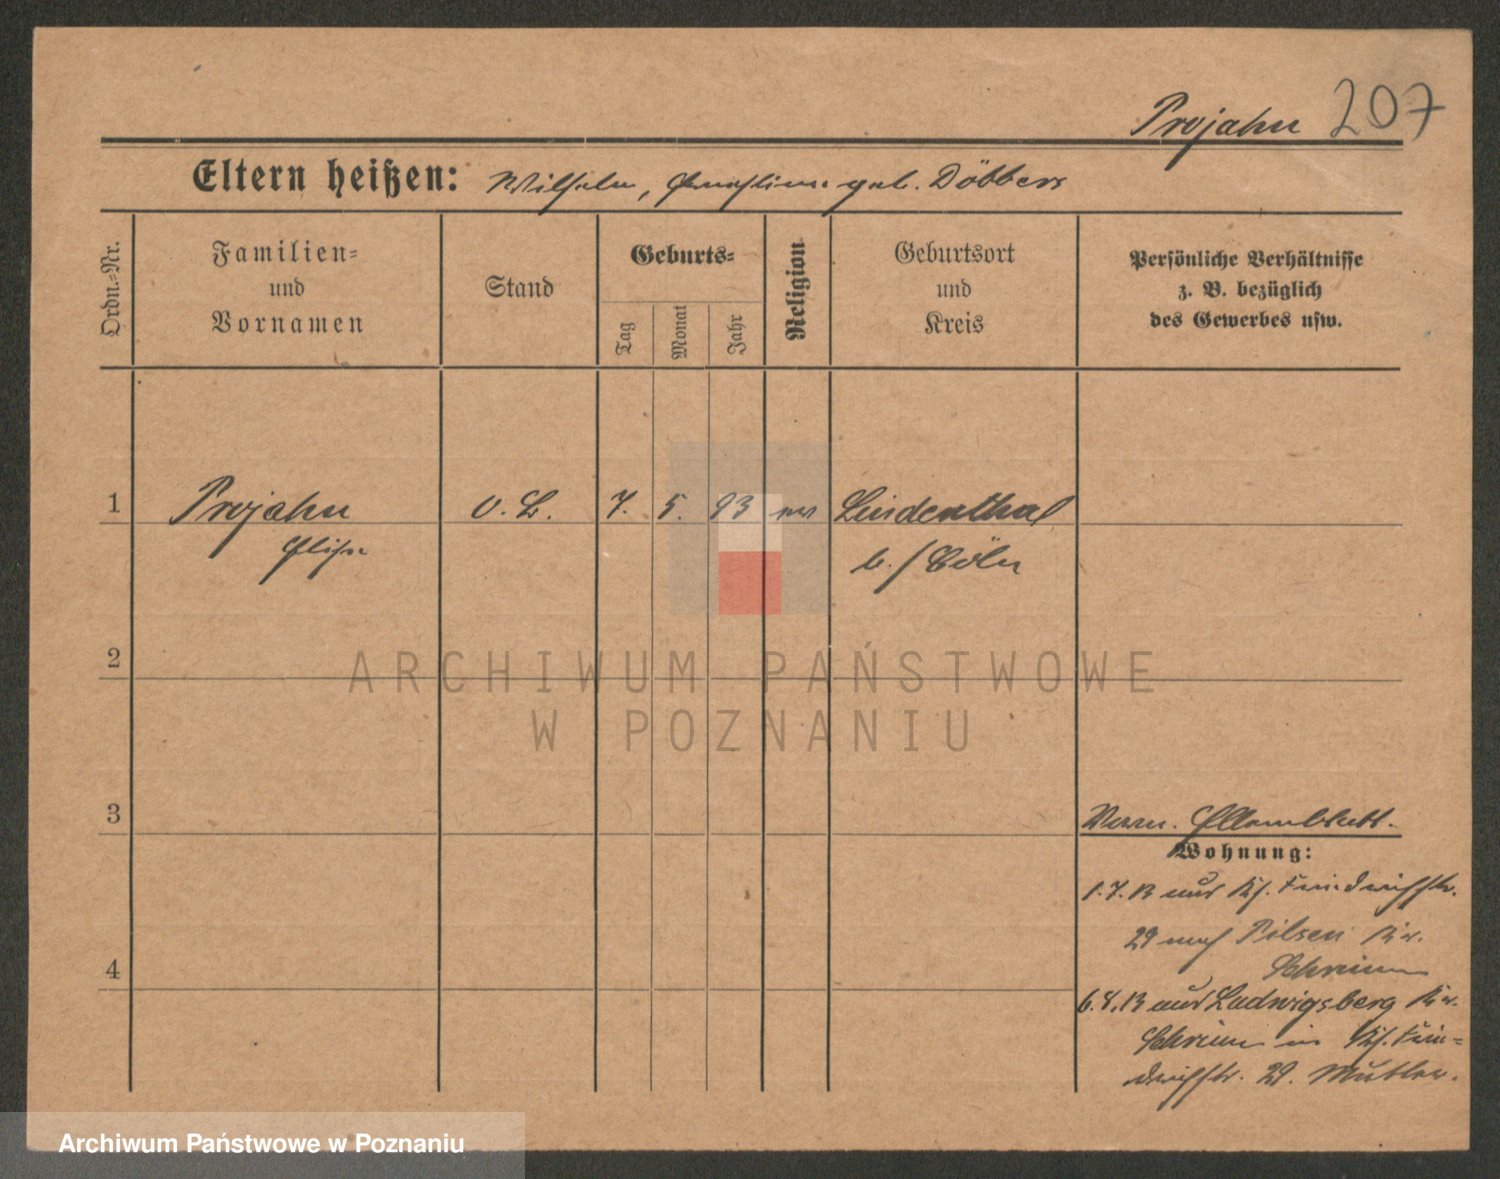 Projahn 207
Eltern heißen: Wilhelm, geb. Döbbers
Ordn.=Nr.
Familien=
und
Vornamen
Stand
Geburts=
Tag
Monat
Jahr
Religion
Geburtsort
und
Kreis
Persönliche Verhältnisse
z. B. bezüglich
des Gewerbes usw.
1 Projahn o. B. 7. 5. 93 ev Lindenthal
Elise b./Cöln
2
3
4
Wohnung:
1.7.13 aus
29 nach Pilsen Kr.
Schrimm
6.8.13 aus Ludwigsberg Kr.
Schrimm in
29. Mutter.
ARCHIWUM PAŃSTWOWE
W POZNANIU
Archiwum Państwowe w Poznaniu